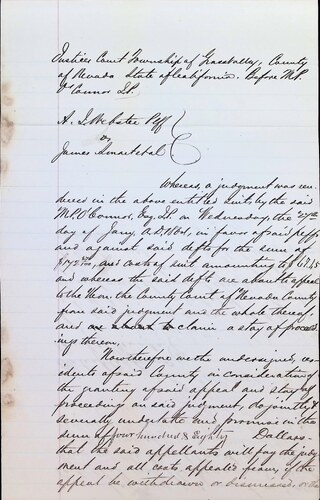 Justices Court Township of Grassvalley, County
of Nevada State of California. Before M.P.
O'Connor J.P.
A. I. Webster Plff
vs
James Smart et al
Whereas, a judgment was ren-
dered in the above entitled suit, by the said
M.P. O'Connor, Esq. J.P. on Wednesday, the 27th
day of Jany, A.D. 1864, in favor of said plff
and against said defts for the sum of
and costs of suit amounting to $ 67.45
and whereas the said defts are about to appeal
to the Hon. the County Court of Nevada County
from said judgment and the whole thereof,
and to claim a stay of proceed-
ings thereon.
Now therefore we the undersigned, res-
idents of said County in consideration of
the granting of said appeal and stay of
proceeding on said judgment, do jointly &
severally undertake and promise in the
sum of four hundred & eighty Dollars—
that the said appellants will pay the judg-
ment and all costs appealed from, if the
appeal be withdrawn or dismissed, or the